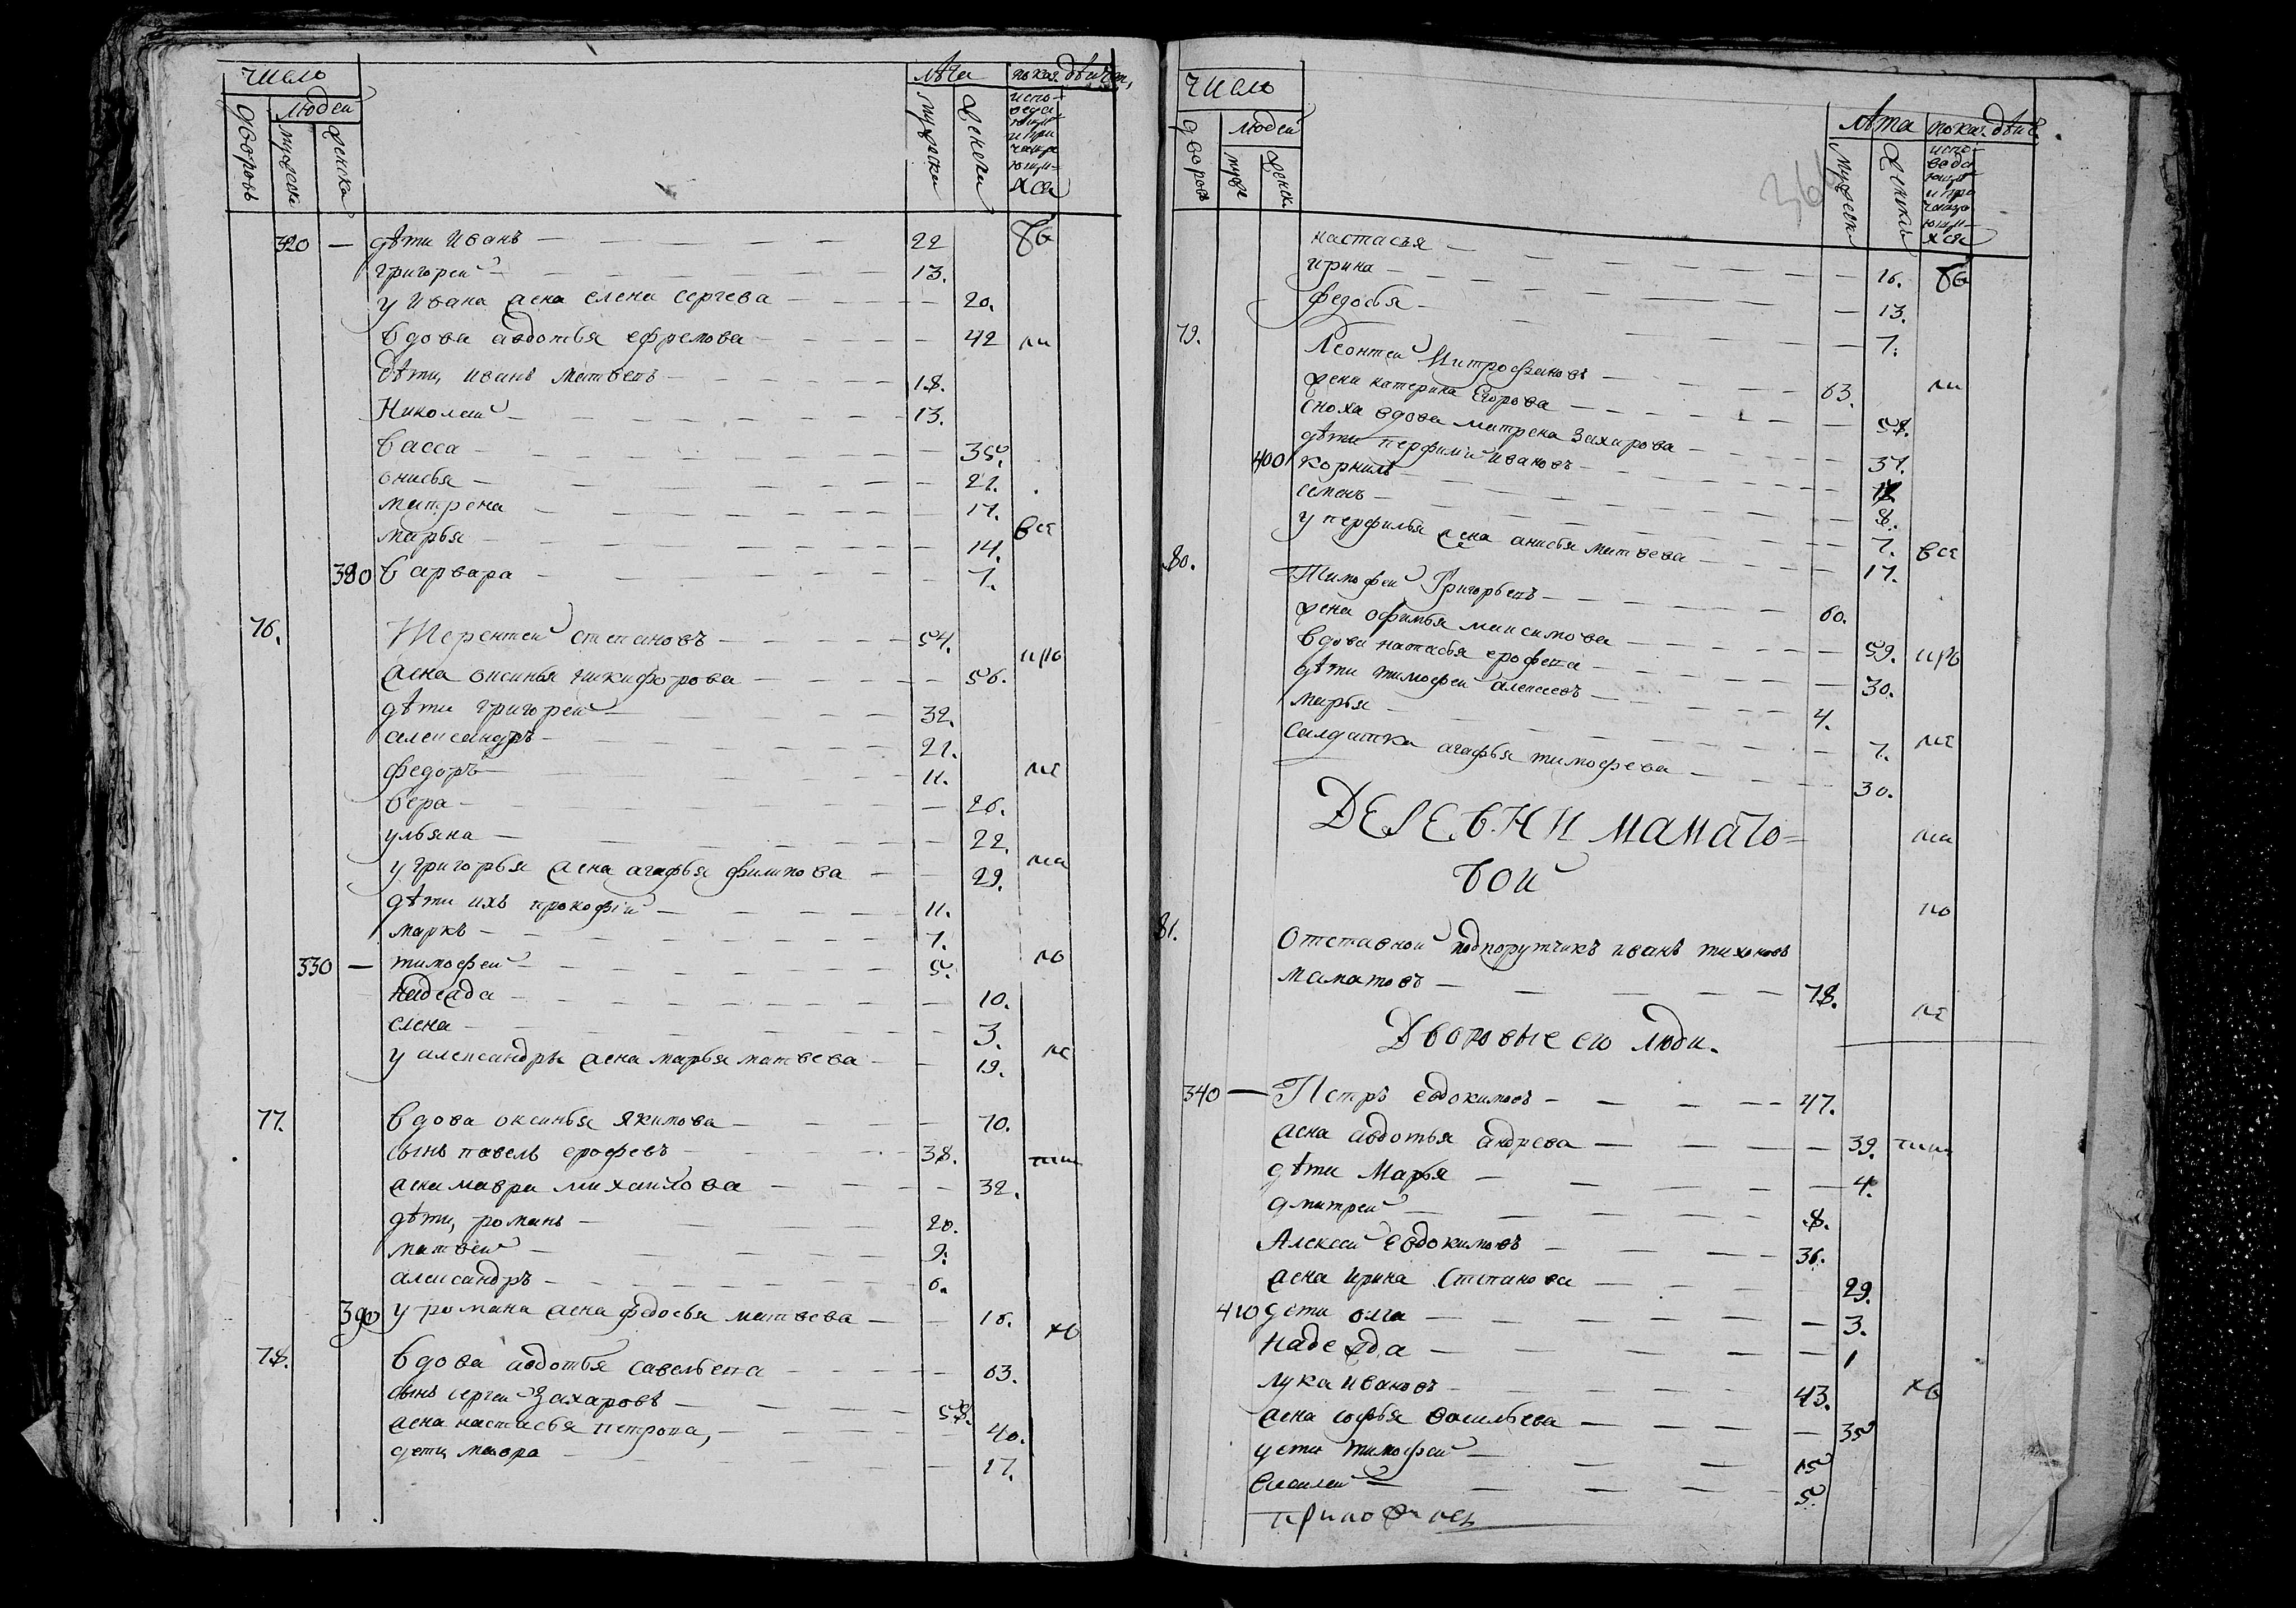 число
людей
дворовъ
мужеска
женска
лѣта
мужеска
женска
показ. дѣйств,
испо-
веда
ющи
и при
чаща
ющи-
хся
320 — дѣти Иванъ — 22 бы
григорей — 13.
у Ивана жена елена сергева — 20.
вдова авдотья ефремова — 42 ли
дѣти, иванъ матвевъ — 18.
Николай — 13.
васса — 35.
онисья — 21.
матрена — 17.
марья — 14. все
380 варвара — 7.
76. Терентей степановъ — 54.
жена оксинья никифорова — 56.
дѣти григорей — 32.
александръ — 21.
федоръ — 11.
вера — 26.
ульяна — 22.
у григорья жена агафья филипова — 29.
дѣти ихъ прокофій — 11.
маркъ — 7.
330 — тимофей — 5. по
надежда — 10.
елена — 3.
у александра жена марья матвева — 19.
77. вдова оксинья якимова — 70.
сынъ павелъ ерофеевъ — 38.
жена мавра михаилова — 32.
дѣти, романъ — 20.
матвей — 9.
александръ — 6.
390 у романа жена федосья матвева — 16.
78. вдова авдотья савельева — 63.
сынъ сергей захаровъ — 58.
жена настасья петрова, — 40.
дети мавра — 17.
число
людей
дворовъ
мужес
женск.
лѣта
мужеска
женска
показ. дѣйс.
испо-
веда
ющи
и при
чаща
ющи-
хся
настасья — 16. бы
ирина — 13.
федосья — 7.
79. Леонтей Митрофановъ — 63. ли
жена катерина Егорова — 58.
сноха вдова матрена захарова — 37.
дѣти перфилій ивановъ —
400 корнилъ — 8.
семенъ — 7. все
у перфилья жена анисья матвева — 17.
80. Тимофей Григорьевъ — 60.
жена офимья максимова — 59.
вдова настасья ерофеева — 30.
дѣти тимофей алексеевъ — 4.
марья — 7.
салдатка агафья тимофеева — 30.
ДЕРЕВНИ МАМАТО-
ВОЙ по
81. Отставной подпорутчикъ иванъ тихоновъ
маматовъ — 78.
Дворовые его люди.
340 — Петръ евдокимовъ — 47.
жена авдотья андреева — 39.
дѣти Марья — 4.
дмитрей — 8.
Алексей Евдокимовъ — 36.
жена Ирина Степанова — 29.
410 дети олга — 3.
надежда — 1
лука ивановъ — 43.
жена софья васильева — 35
дети тимофей — 15
василей — 5.